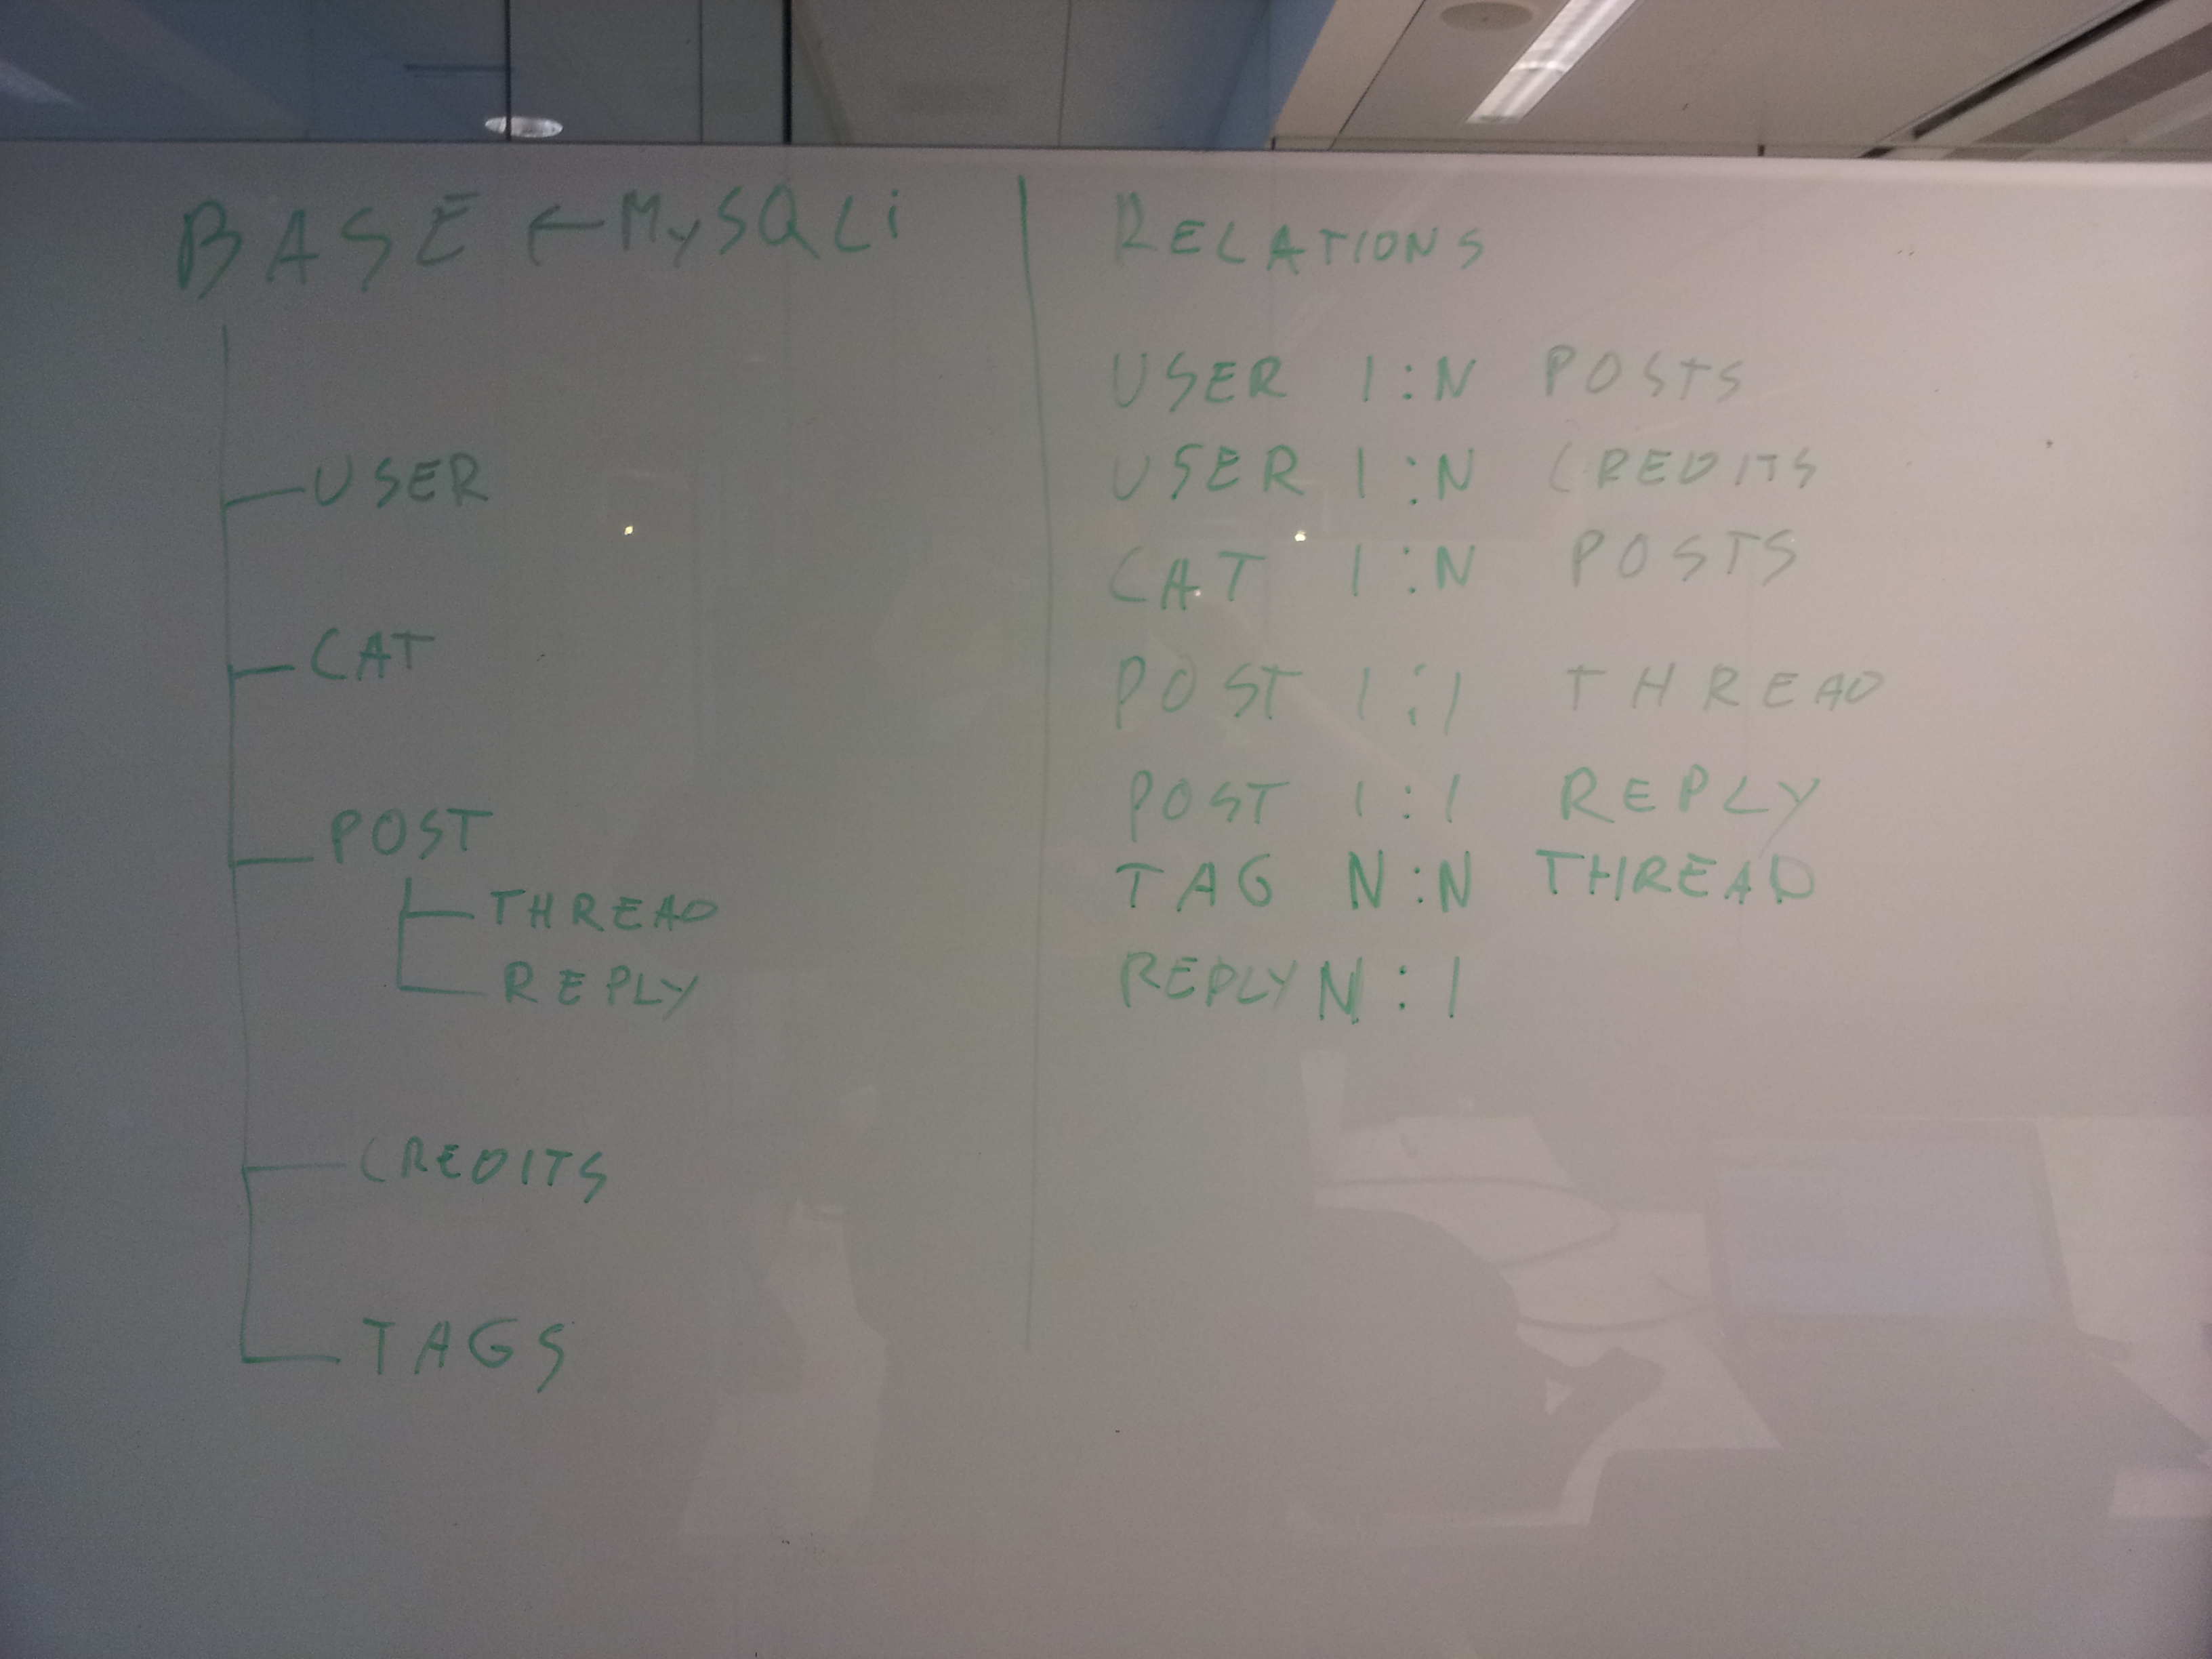 BASE ← MySQLi
USER
CAT
POST
THREAD
REPLY
CREDITS
TAGS
RELATIONS
USER 1:N POSTS
USER 1:N CREDITS
CAT 1:N POSTS
POST 1:1 THREAD
POST 1:1 REPLY
TAG N:N THREAD
REPLY N:1